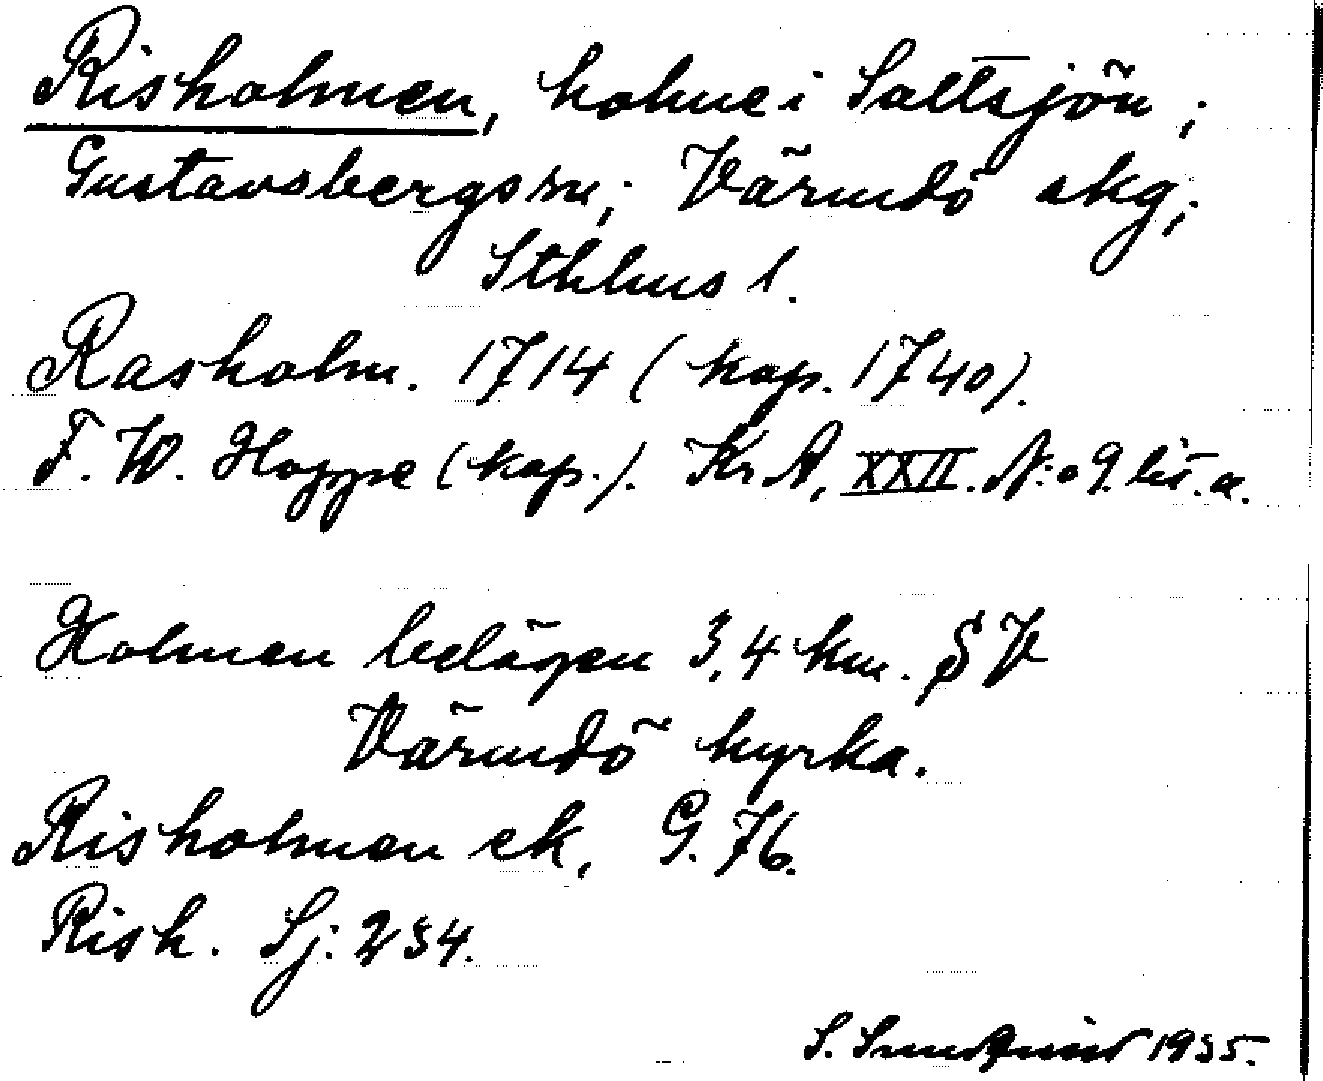 Risholmen, holme i Saltsjön;
Gustavsbergs sn; Värmdö skg;
Sthlms l.
Rasholm. 1714 (kop. 1740).
F. W. Hoppe (kop.). Kr A, XXII. N:o 9. lit. a.
Holmen belägen 3,4 km. SV
Värmdö kyrka.
Risholmen ek, G. 76.
Rish. Sj: 234.
S. Sundquist 1935.